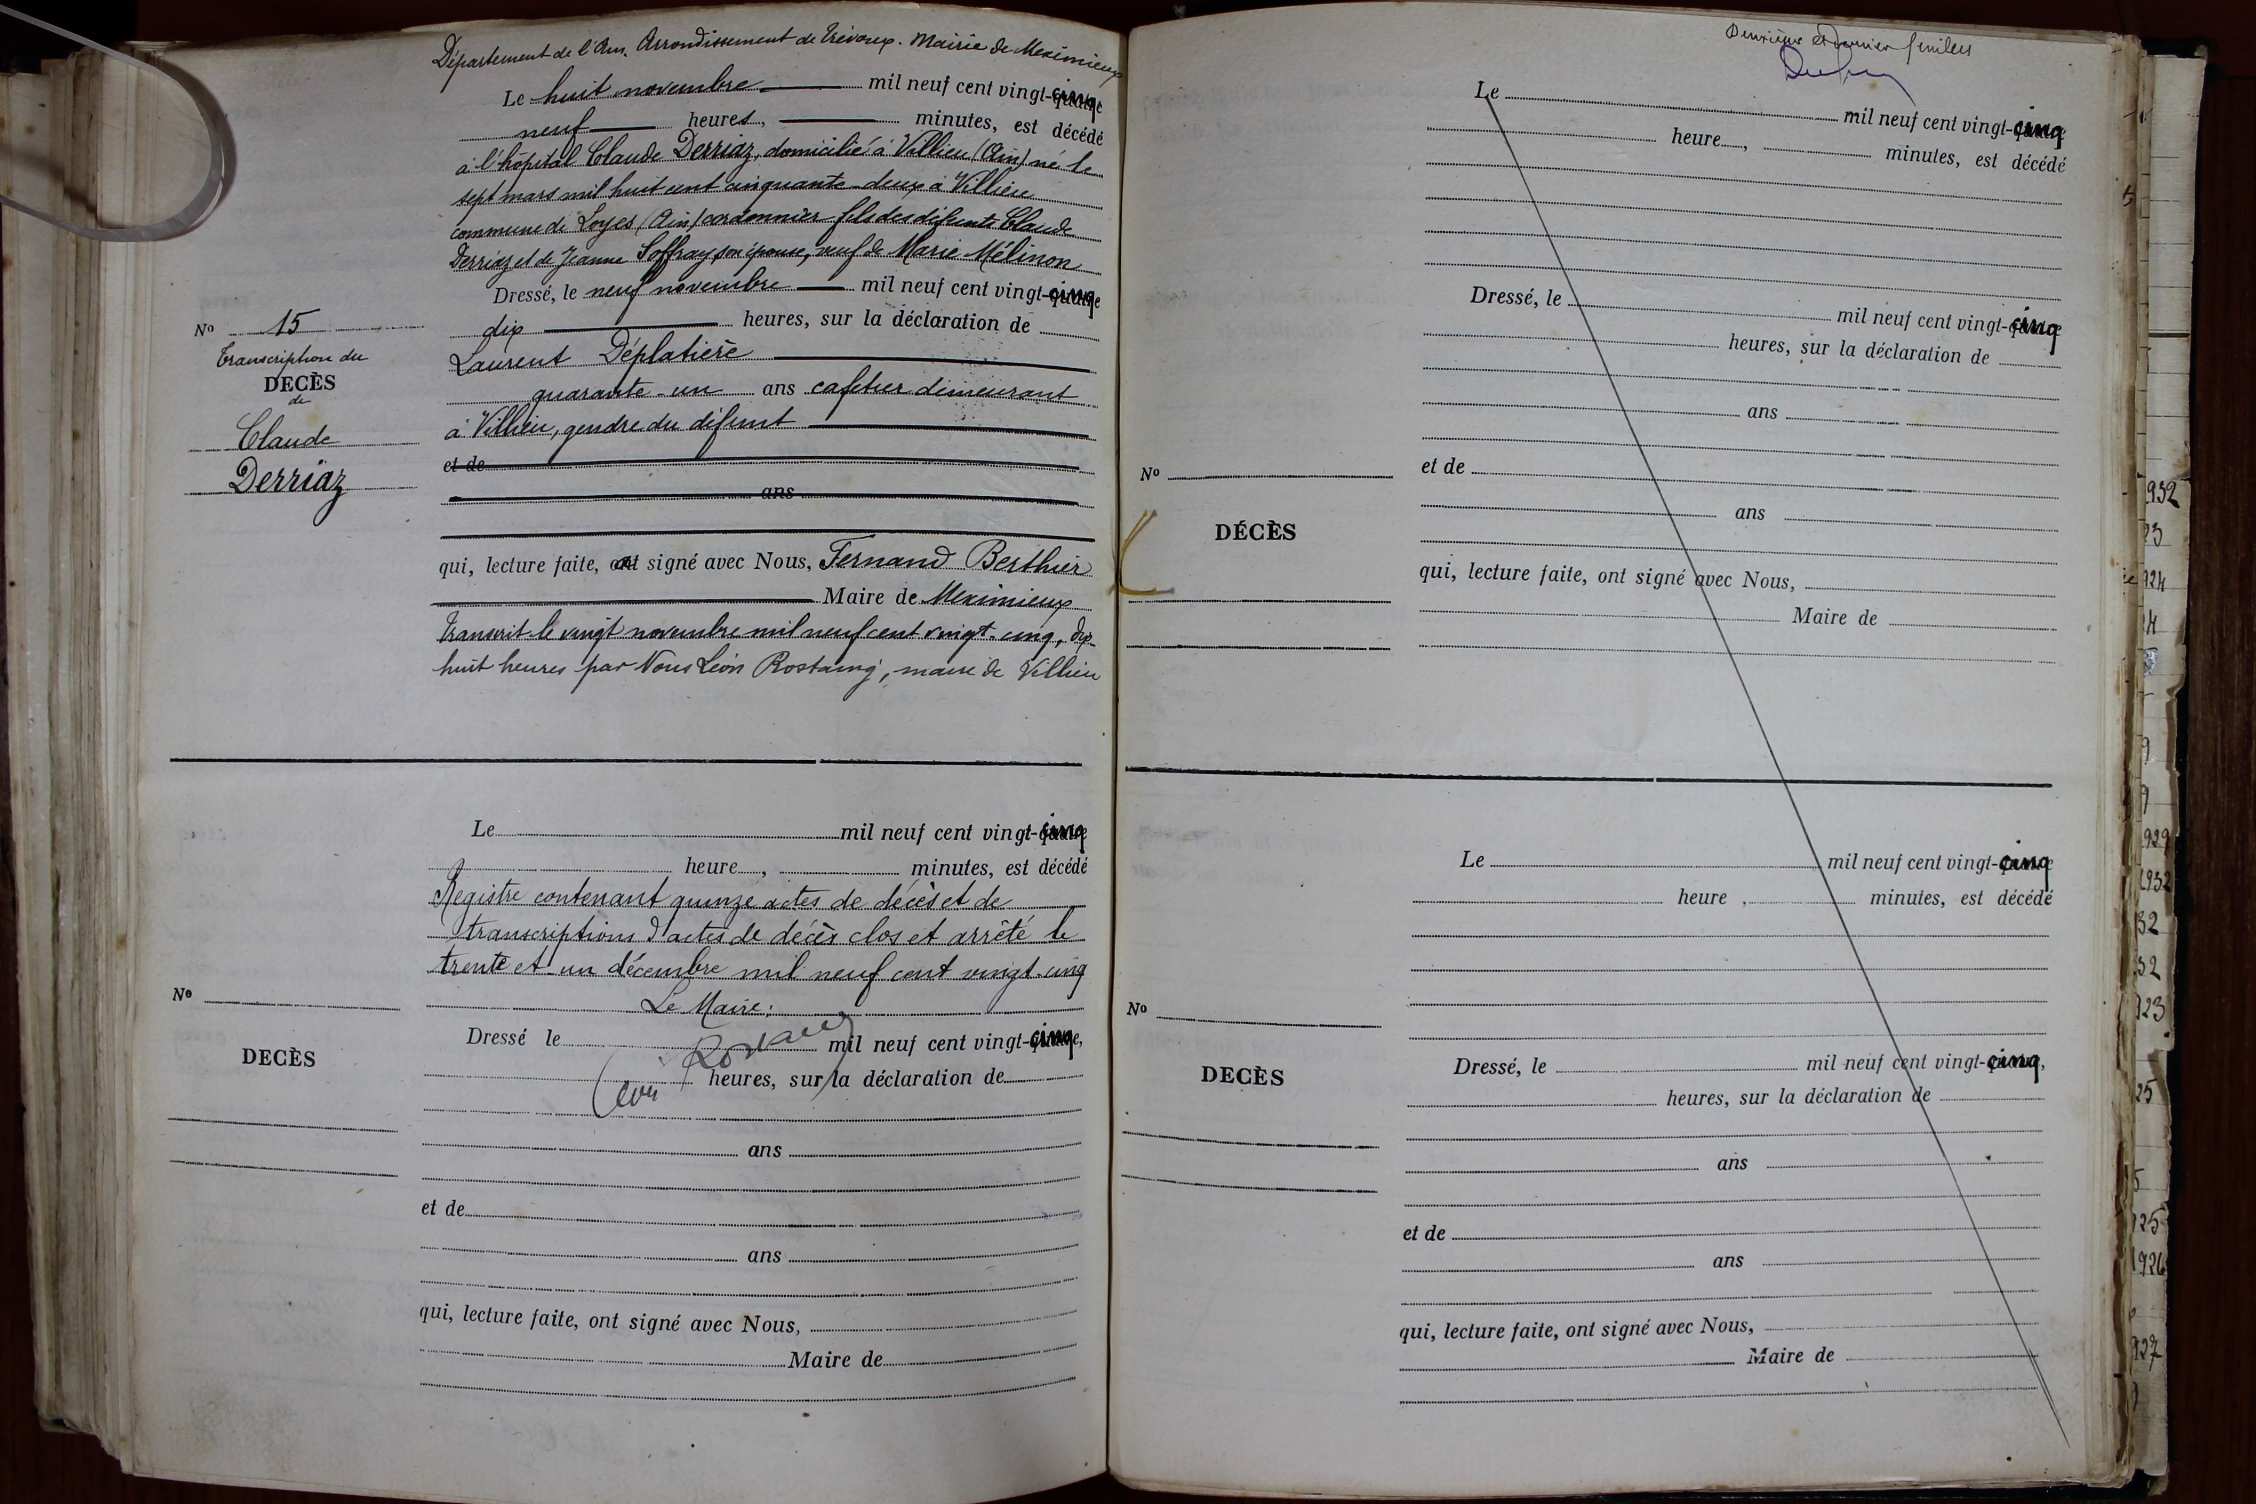 Département de l'Ain. Arrondissement de Trévoux. Mairie de Meximieux
Le huit novembre mil neuf cent vingt-cinq
neuf heures, minutes, est décédé
à l'hôpital Claude Derriaz, domicilié à Villieu (Ain) né le
sept mars mil huit cent cinquante-deux à Villieu
commune de Loyes (Ain) cordonnier fils des défunts Claude
Derriaz et de Jeanne Soffray son épouse, veuf de Marie Mélinon
Dressé, le neuf novembre mil neuf cent vingt-cinq
dix heures, sur la déclaration de
Laurent Déplatière
quarante-un ans cafetier demeurant
à Villieu, gendre du défunt
et de
ans
qui, lecture faite, a signé avec Nous, Fernand Berthier
Maire de Meximieux
Transcrit le vingt novembre mil neuf cent vingt-cinq, dix-
huit heures par Nous Léon Rostaing, maire de Villieu
No 15
Transcription du
DECÈS
de
Claude
Derriaz
Le mil neuf cent vingt-cinq
heure , minutes, est décédé
Registre contenant quinze actes de décès et de
transcriptions d'actes de décès clos et arrêté le
trente et un décembre mil neuf cent vingt-cinq
Le Maire:
Dressé le mil neuf cent vingt-cinq,
Léon Rostaing
heures, sur la déclaration de
ans
et de
ans
qui, lecture faite, ont signé avec Nous,
Maire de
No
DECÈS
Deuxième et dernier feuillet
Le mil neuf cent vingt-cinq
heure , minutes, est décédé
Dressé, le mil neuf cent vingt-cinq
heures, sur la déclaration de
ans
et de
ans
qui, lecture faite, ont signé avec Nous,
Maire de
No
DÉCÈS
Le mil neuf cent vingt-cinq
heure , minutes, est décédé
Dressé, le mil neuf cent vingt-cinq,
heures, sur la déclaration de
ans
et de
ans
qui, lecture faite, ont signé avec Nous,
Maire de
No
DECÈS